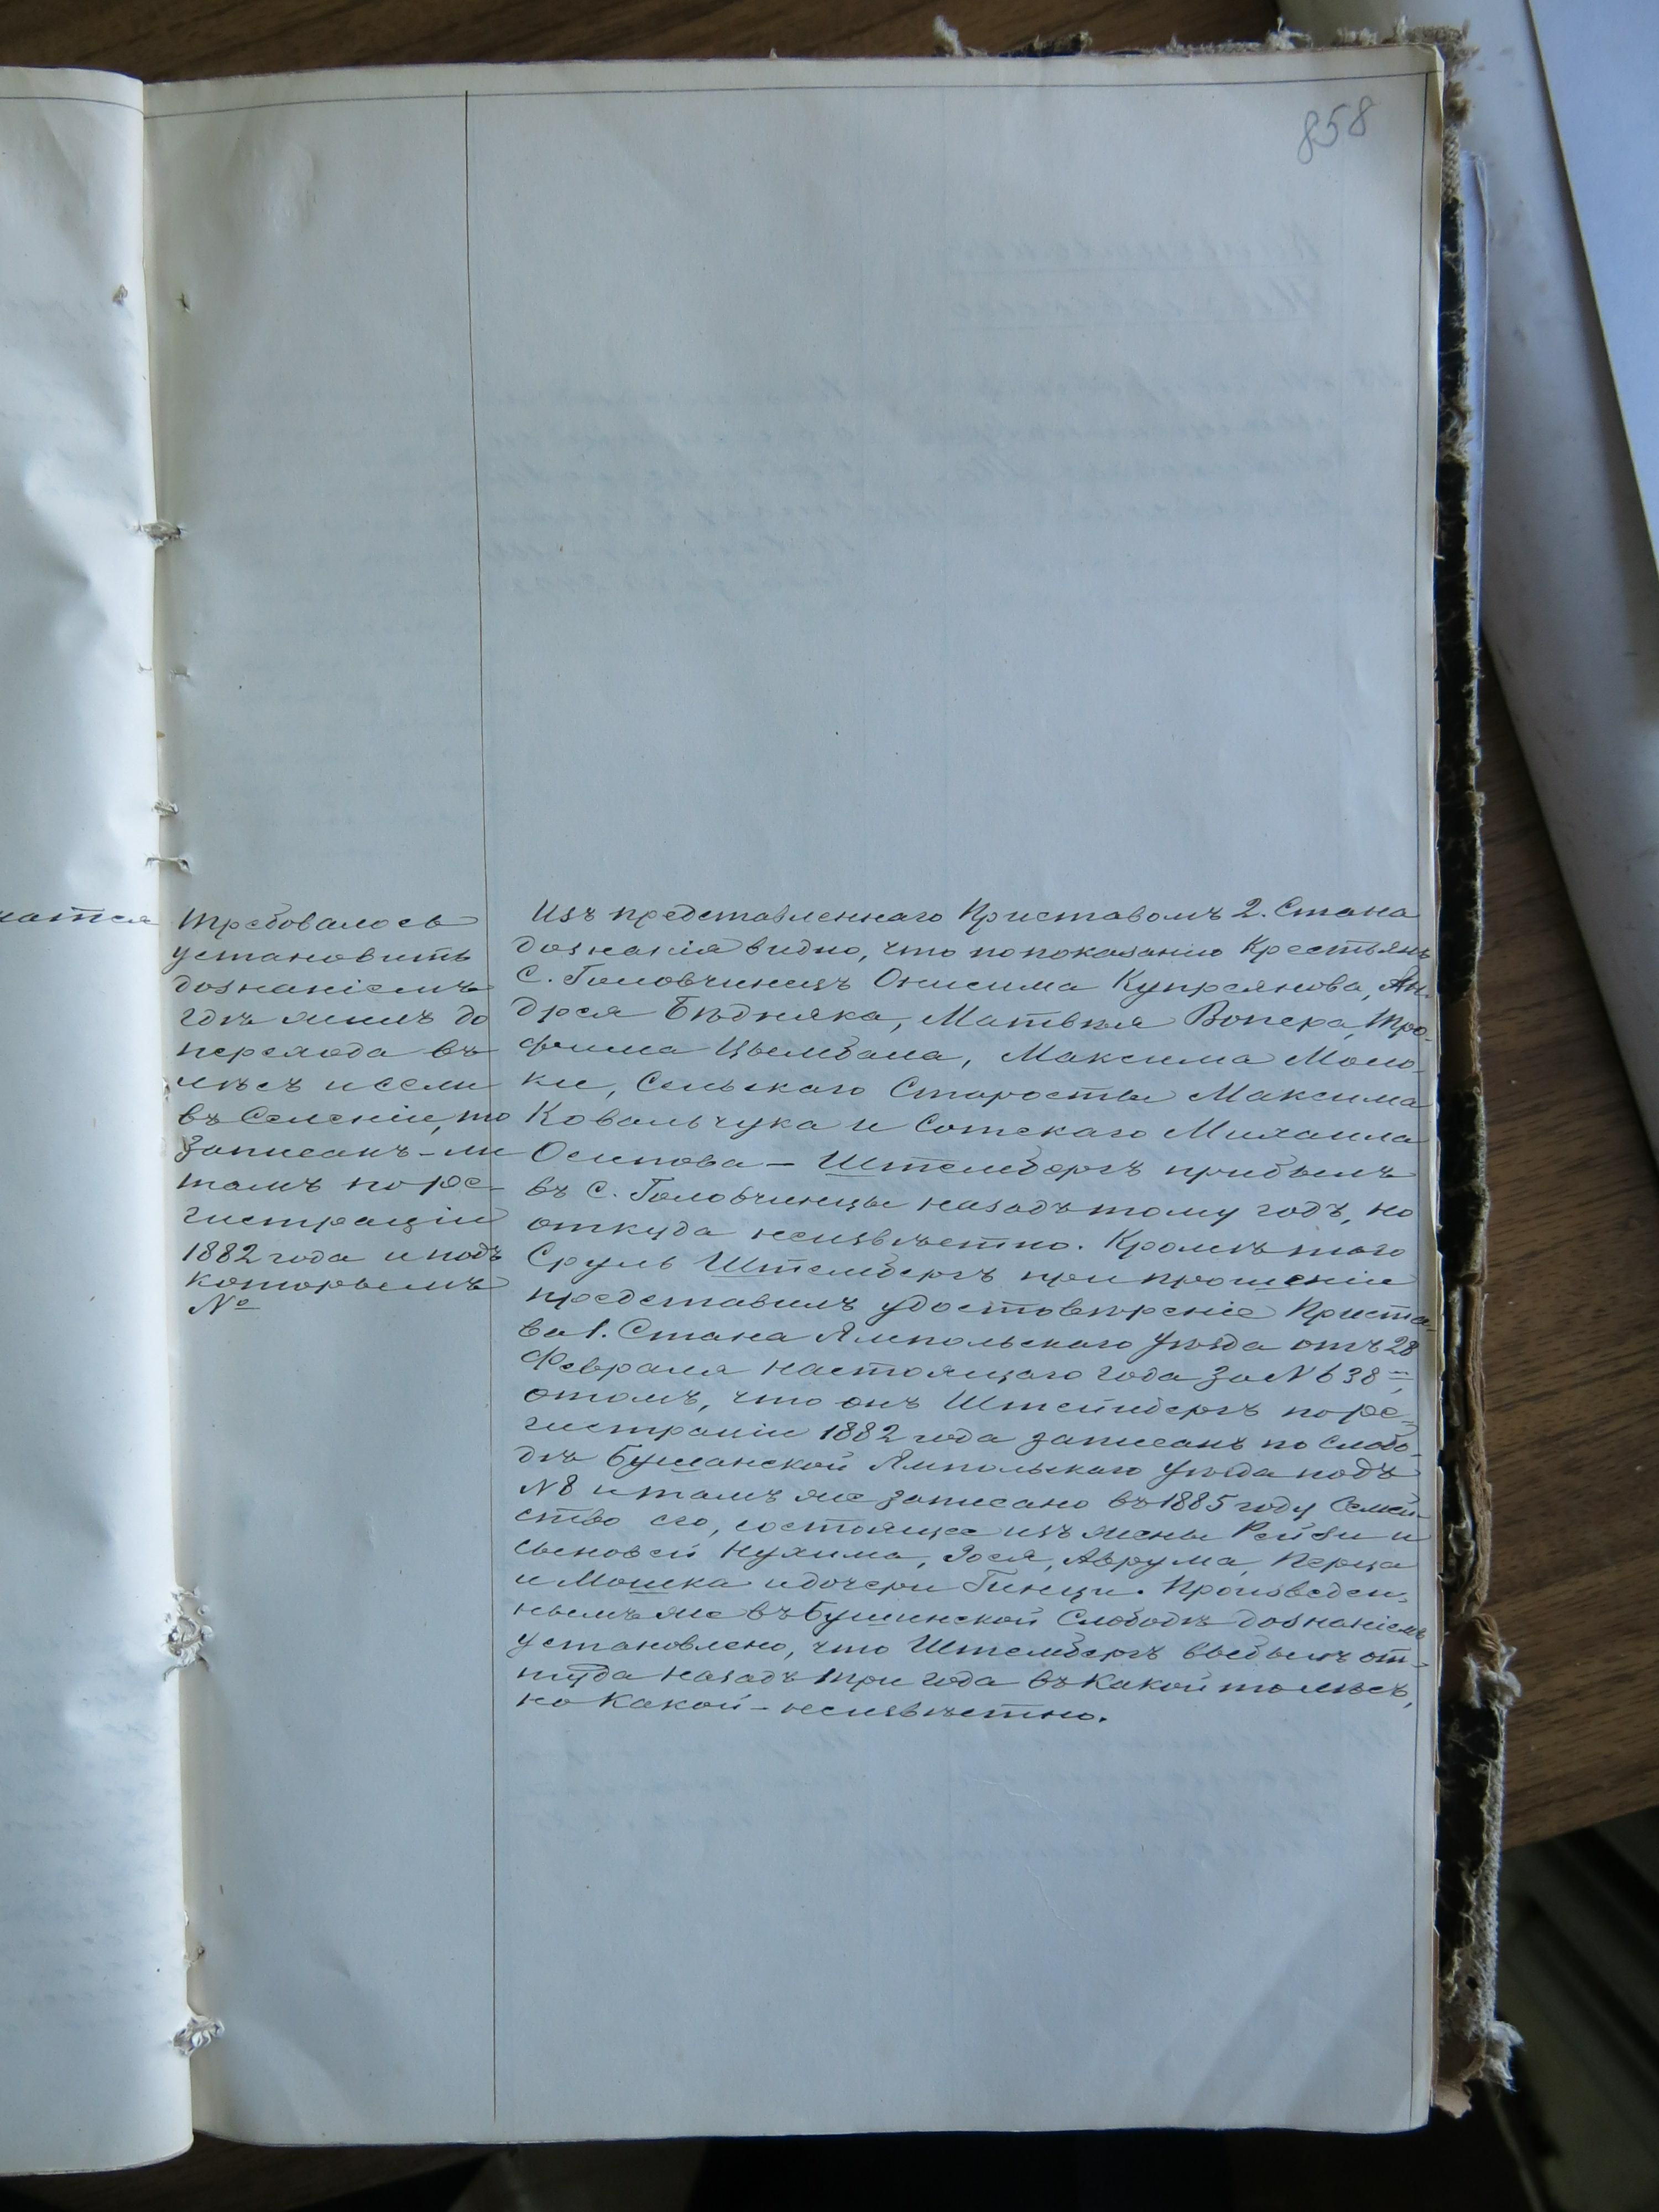 858
чается
Требовалось
установить
дознаніемъ
гдѣ жилъ до
перехода въ
лѣсъ и если
въ Селеніи, то
записанъ-ли
тамъ по ре-
гистраціи
1882 года и подъ
которымъ
№
Изъ представленнаго Приставомъ 2. Стана
дознанія видно, что по показанію Крестьянъ
С. Головчинецъ Онисима Купреянова, Ан-
дрея Бѣдняка, Матвѣя Вопера, Тро-
фима Цымбала, Максима Моло-
ки, Сельскаго Старосты Максима
Ковальчука и Сотскаго Михаила
Осипова – Штемберъ прибылъ
въ С. Головчинцы назадъ тому годъ, но
откуда неизвѣстно. Кромѣ того
Сруль Штембергъ при прошеніи
представилъ удостовѣреніе Приста-
ва 1. Стана Ямпольскаго уѣзда отъ 28
Февраля настоящаго года за № 638 =,
о томъ, что онъ Штейнбергъ по ре-
гистраціи 1882 года записанъ по Слобо-
дѣ Бушанской Ямпольскаго уѣзда подъ
№ 8 и тамъ же записано въ 1885 году Семей-
ство его, состоящее изъ жены Рейзи и
сыновей Нухима, Іося, Аврума, Перца
и Мошка и дочери Гинци. Произведен-
нымъ же въ Бушинской Слободѣ дознаніемъ
установлено, что Штембергъ выбылъ от-
туда назадъ три года въ какой то лѣсъ,
но какой – неизвѣстно.